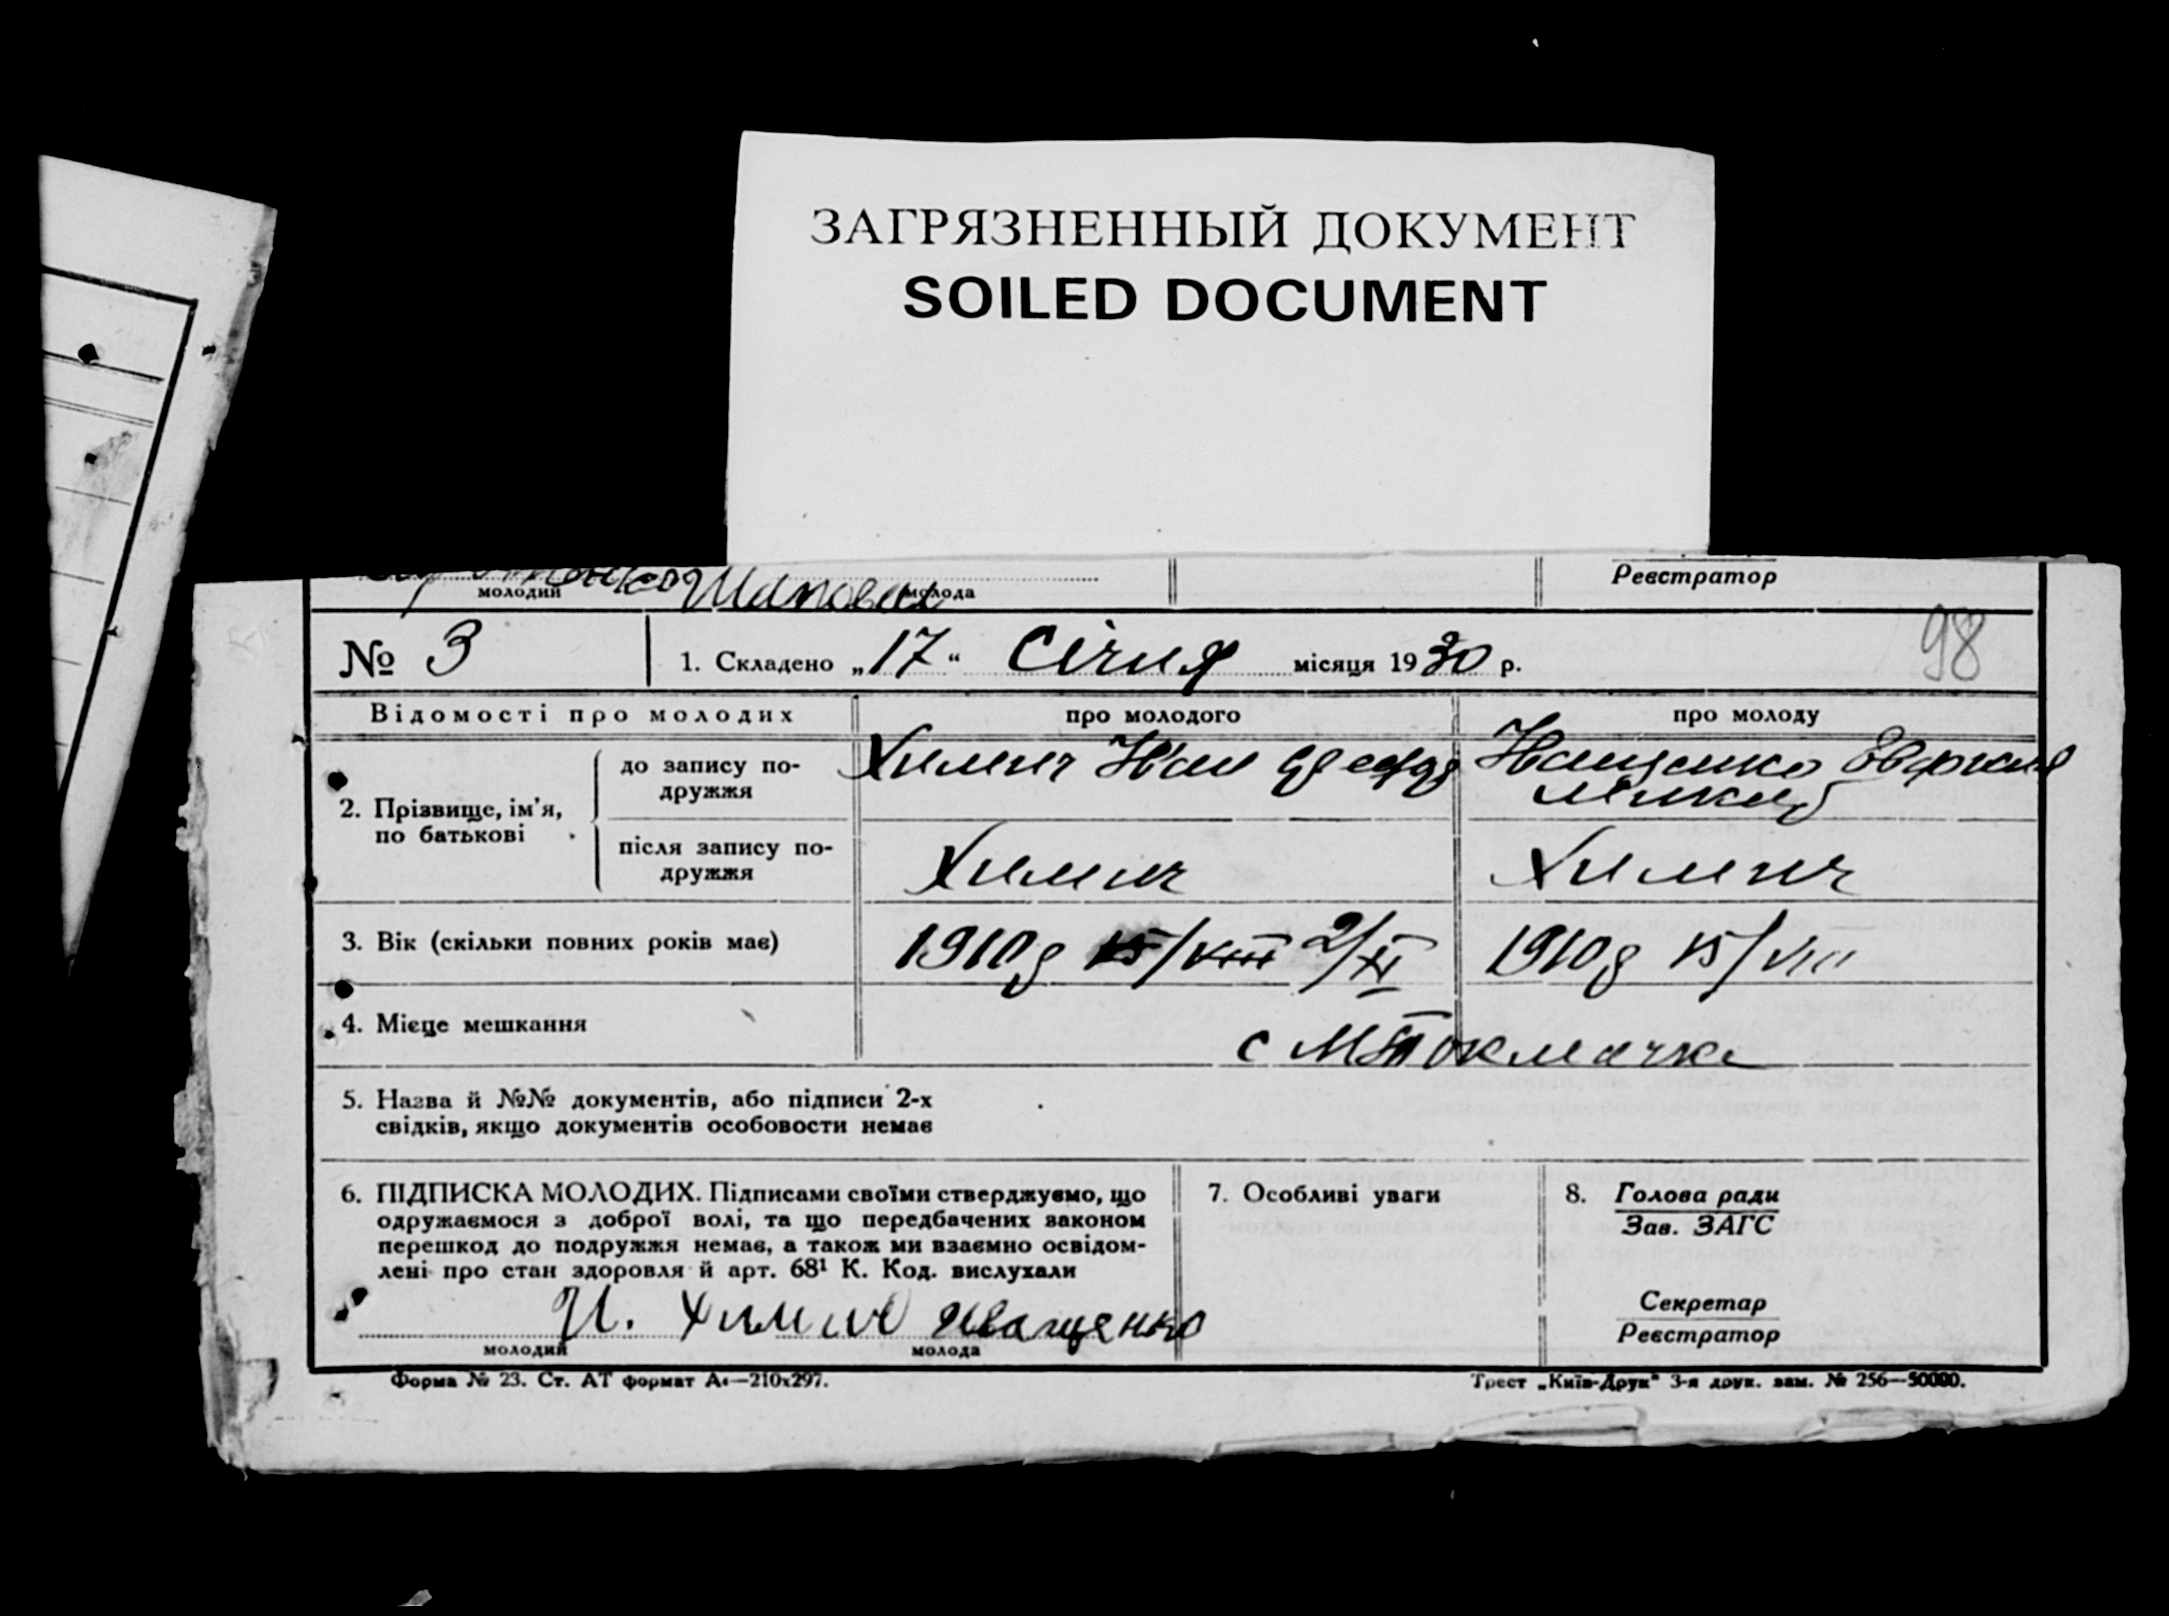 ЗАГРЯЗНЕННЫЙ ДОКУМЕНТ
SOILED DOCUMENT
молодий молода
Реєстратор
№ 3
1. Складено „17“ Січня місяця 1930 р.
98
Відомості про молодих
про молодого
про молоду
2. Прізвище, ім'я,
по батькові
до запису по-
дружжя
Химич Иван
Иващенко
після запису по-
дружжя
Химич
Химич
3. Вік (скільки повних років має)
1910 15/VIII 2/XI
1910 15/VIII
4. Місце мешкання
с М Токмачка
5. Назва й №№ документів, або підписи 2-х
свідків, якщо документів особовости немає
6. ПІДПИСКА МОЛОДИХ. Підписами своїми стверджуємо, що
одружаємося з доброї волі, та що передбачених законом
перешкод до подружжя немає, а також ми взаємно освідом-
лені про стан здоровля й арт. 68¹ К. Код. вислухали
И. Химич Иващенко
молодий молода
7. Особливі уваги
8. Голова ради
Зав. ЗАГС
Секретар
Реєстратор
Форма № 23. Ст. АТ формат А4—210x297.
Трест „Київ-Друк“ 3-я друк. зам. № 256—50000.